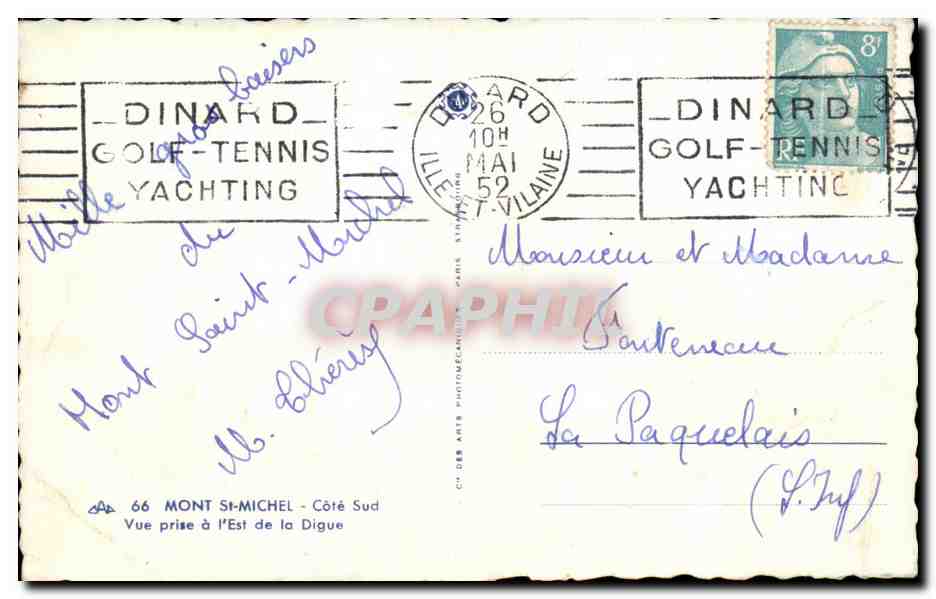 DINARD
GOLF-TENNIS
YACHTING
DINARD
26
10H
MAI
52
ILLE-ET-VILAINE
DINARD
GOLF-TENNIS
YACHTING
8F
RF
Mille gros baisers
du
Mont Saint-Michel
M. Thérèse
Monsieur et Madame
Fonteneau
La Paquelais
(L. Inf)
CPAPHIL
CIE DES ARTS PHOTOMÉCANIQUES PARIS STRASBOURG
66 MONT St-MICHEL - Côté Sud
Vue prise à l'Est de la Digue